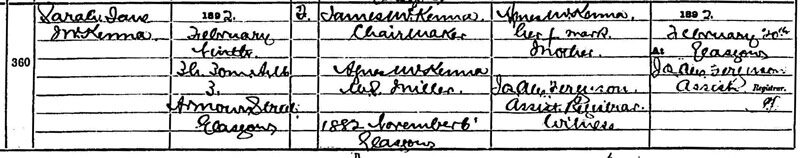 360
Sarah Jane
McKenna
1892.
February
Ninth
7h. 30m. A.M.
3.
Armour Street
Glasgow
F.
James McKenna
Chairmaker
Agnes McKenna
M.S. Miller
1882 November 6
Glasgow
Agnes McKenna
Her X mark
Mother.
Jas Alex Ferguson.
Assist Registrar
Witness
1892
February 20th
At Glasgow
Jas Alex Ferguson
Assist Registrar.